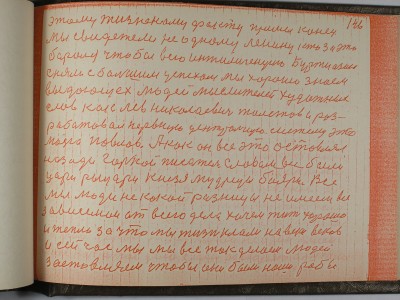 136
этому жизненому факту пришел конец
мы свидетели не одному Ленину
борому чтобы всю интилигенцию Буржуазию
сняли с большим успехом мы хорошо знаем
выдающех людей мыслителей художник
слов как Лев Николаевич толстов и раз-
рабатовал нервную центральную систему это
мозга повлов. А как он все это оставлял
позади Горкой писатель словом все были
цари рыцари князя мудреци бояри. Все
мы люди не какой разници не имеем все
зависемии от всего дела хочем жить хорошо
и тепло за что мы тизнили на виш веков
и сей час мы мы все так делаем людей
заставляем чтобы они были наши рабы